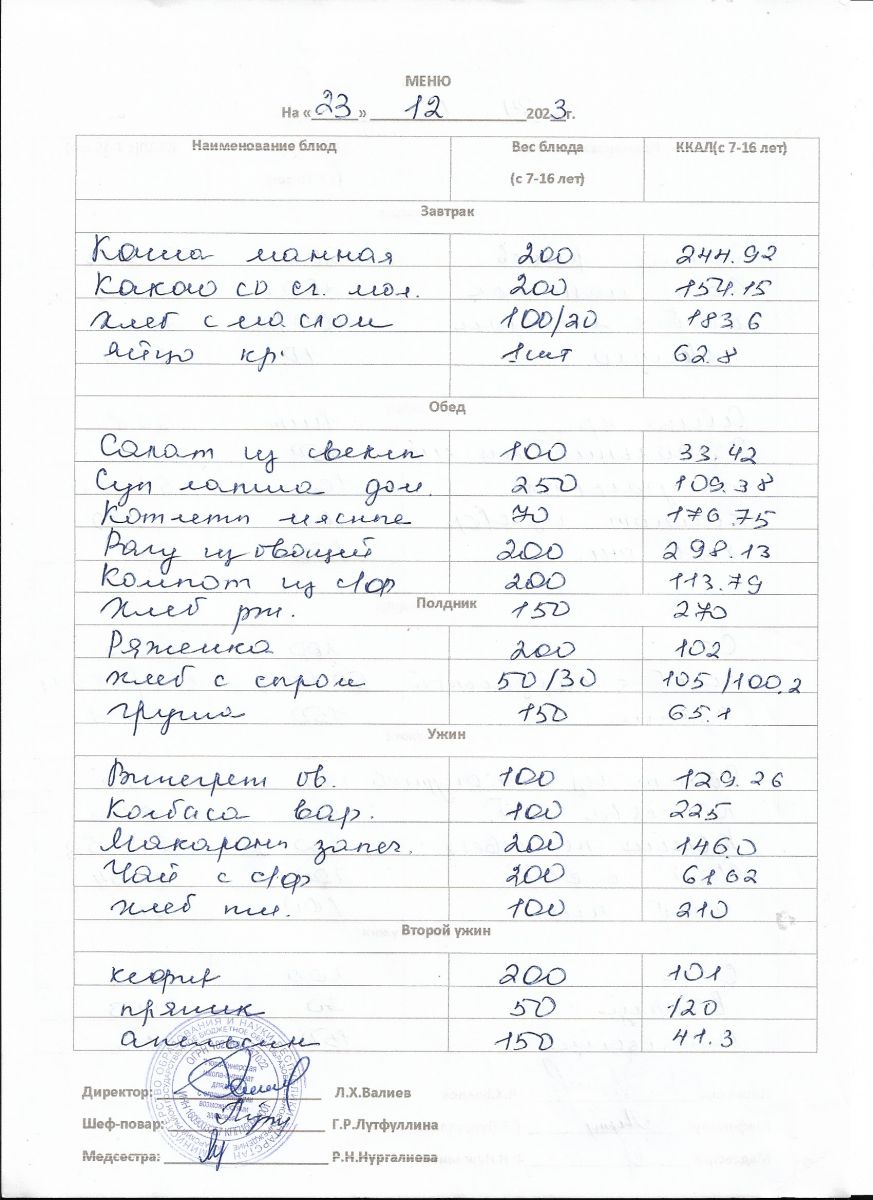 МЕНЮ
На «23» 12 2023г.
Наименование блюд Вес блюда (с 7-16 лет) ККАЛ(с 7-16 лет)
Завтрак
Каша манная 200 244.92
Какао со сг. мол. 200 154.15
Хлеб с маслом 100/20 183.6
Яйцо кр. 1шт 62.8
Обед
Салат из свеклы 100 33.42
Суп лапша дом. 250 109.38
Котлеты мясные 70 176.75
Рагу из овощей 200 298.13
Компот из с/ф 200 113.79
Хлеб рж. 150 270
Полдник
Ряженка 200 102
Хлеб с сыром 50/30 105/100.2
Груша 150 65.1
Ужин
Винегрет ов. 100 129.26
Колбаса вар. 100 225
Макароны запеч. 200 146.0
Чай с с/ф 200 61.62
Хлеб пш. 100 210
Второй ужин
кефир 200 101
пряник 50 120
апельсин 150 41.3
Директор: Л.Х.Валиев
Шеф-повар: Г.Р.Лутфуллина
Медсестра: Р.Н.Нургалиева